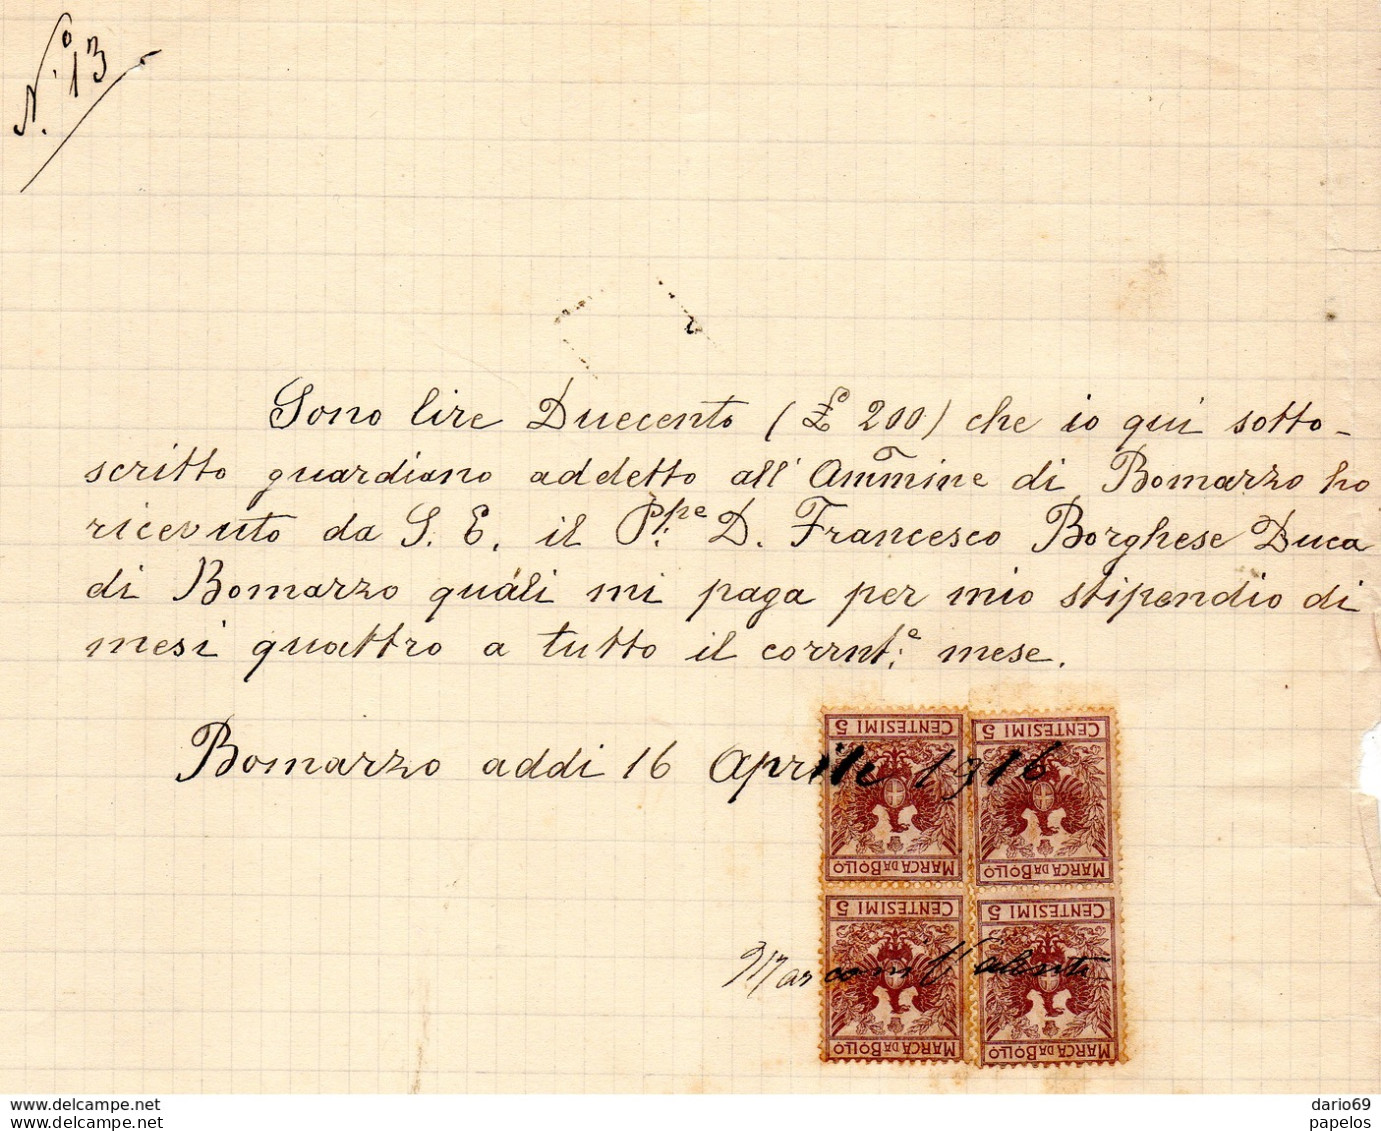 N.º 13
Sono lire Duecento (£ 200) che io qui sotto-
scritto guardiano addetto all' Ammine di Bomarzo ho
ricevuto da S. E. il P.pe D. Francesco Borghese Duca
di Bomarzo quali mi paga per mio stipendio di
mesi quattro a tutto il corrnt.e mese.
Bomarzo addi 16 Aprile 1916
CENTESIMI 5 CENTESIMI 5
MARCA DA BOLLO MARCA DA BOLLO
CENTESIMI 5 CENTESIMI 5
Marconi Valenti
MARCA DA BOLLO MARCA DA BOLLO
www.delcampe.net dario69
www.delcampe.net papelos